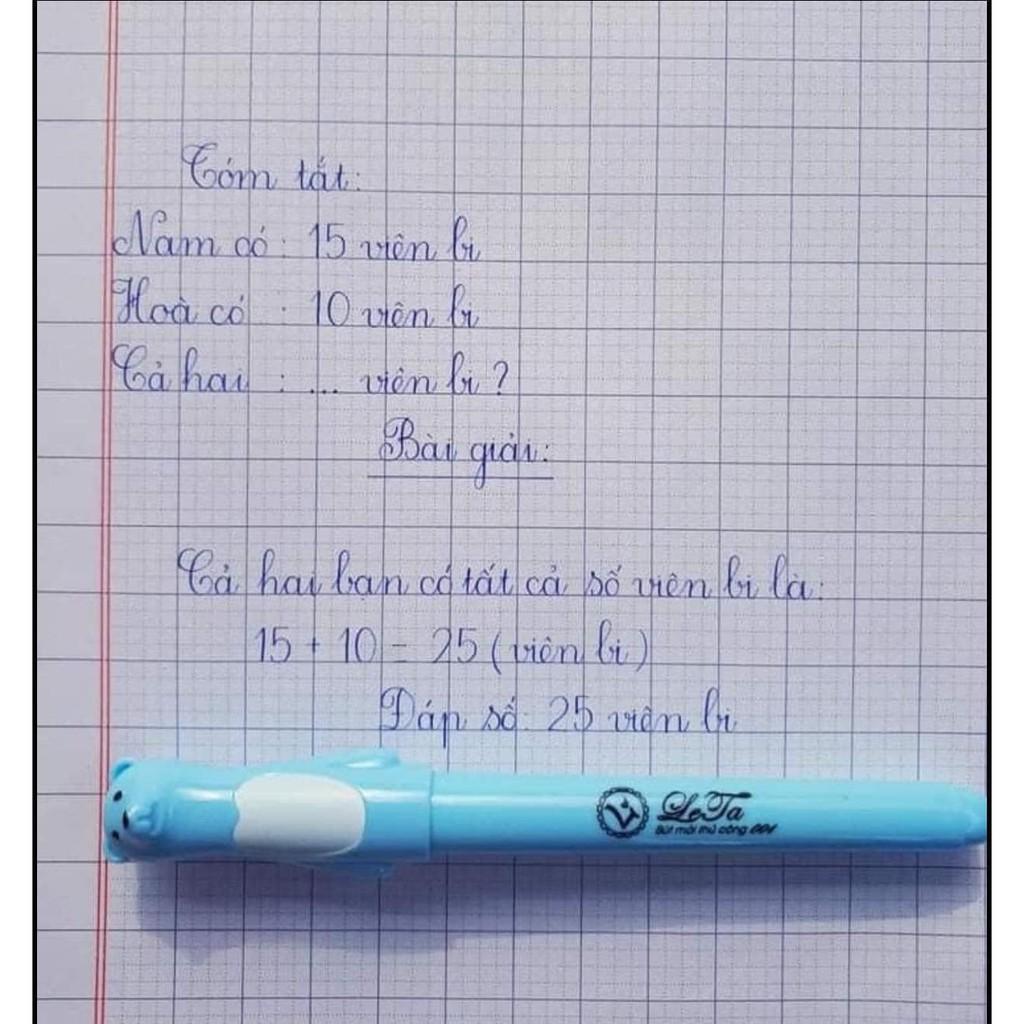 Tóm tắt:
Nam có: 15 viên bi
Hoà có : 10 viên bi
Cả hai : ... viên bi ?
Bài giải:
Cả hai bạn có tất cả số viên bi là:
15 + 10 = 25 (viên bi)
Đáp số: 25 viên bi
LeTa
Bút mài thủ công 001